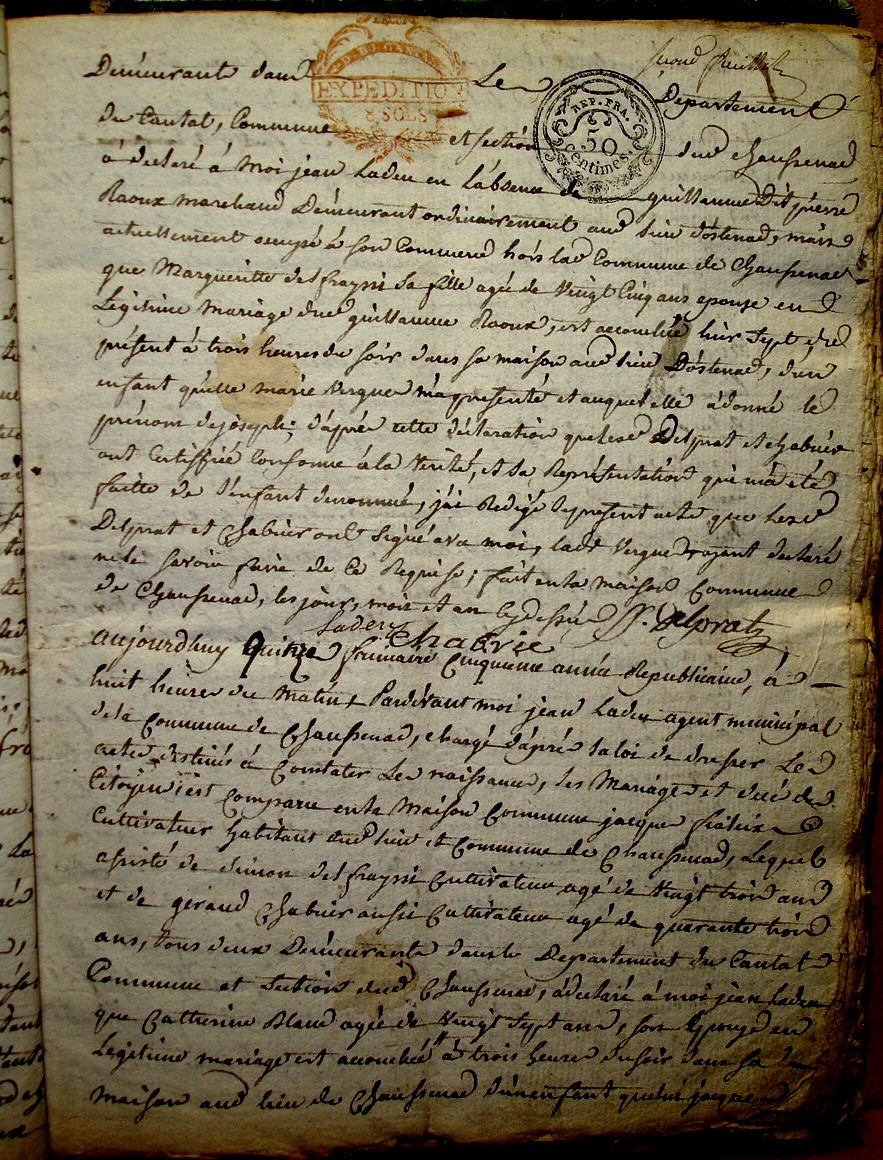 second feuillet
EXPEDITION
8 SOLS
REP. FRA.
50
centimes.
Demeurants dans Le Departement
du Cantal, Commune et section dud chaussenac
à déclaré à moi jean Ladeu en L'absence de guillaume Dit pierre
Raoux marchand Demeurant ordinairement aud lieu d'ostenac, mais
actuellement occupé à son Commerce hors lad Commune de Chaussenac
que Margueritte delfrayssi sa fille agée de vingt Cinq ans epouse en
Legitime Mariage dud guillaume Raoux, est accouchée hier sept du
présent à trois heures du soir dans sa maison aud lieu D'ostenac, d'un
enfant qu'elle marie vergue m'a presenté et auquel elle à donné le
prénom de joseph; d'après cette déclaration que lesd Delprat et chabrier
ont Certiffiée Conforme à la vérité, et la Représentation qui m'a été
faitte de l'enfant denommé, j'ai Redigé le present acte que lesd
Delprat et Chabrier ont signé avec moi, lad Vergue n'ayant declaré
ne le savoir faire de Ce Requise; fait en la maison Commune
de Chaussenac, les jour, mois et an Cy dessus J. Delprat
Ladeu Chabrie
aujourdhuy quinze frimaire Cinquieme année Republicaine, à
huit heures du Matin, Pardevant moi jean Ladeu agent municipal
de la Commune de Chaussenac, chargé d'après la loi de dresser Les
actes destinés à Constater Les naissances, les Mariages et décé des
Citoyens; est Comparu en la Maison Commune jacques
Cultivateur habitant dud lieu et Commune de Chaussenac, Lequel
assisté de simon delfrayssi Cultivateur agé de vingt trois ans
et de geraud Chabrier aussi Cultivateur agé de quarante trois
ans, tous deux Demeurants dans le Departement du Cantal
Commune et section dud Chaussenac, à déclaré à moi jean Ladeu
que Catherine Blanc agée de vingt sept ans, son Epouse en
Legitime mariage est accouchée à trois heures du soir dans sa
maison aud lieu de Chaussenac d'un enfant que lui jacques